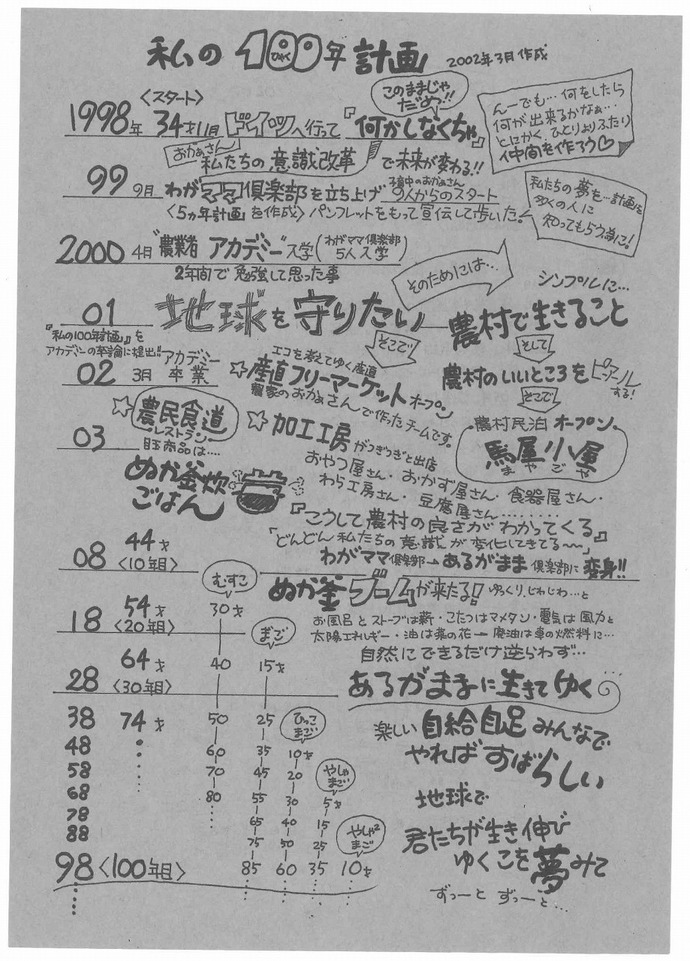 私の100年計画 2002年3月作成
ひゃく
〈スタート〉
このままじゃだめっ!!
1998年 34才11月 ドイツへ行って『何かしなくちゃ』
んーでも…何をしたら
何が出来るかなぁ…
とにかく、ひとりよりふたり
仲間を作ろう♡
おかぁさん
私たちの意識改革で未来が変わる!!
99 9月 わがママ倶楽部を立ち上げ 子育中のおかぁさん 9人からのスタート
〈5ヵ年計画〉を作成〉パンフレットをもって宣伝して歩いた!
私たちの夢を…計画を
多くの人に
知ってもらう為に!
2000 4月 "農業者アカデミー"入学(わがママ倶楽部 5人入学)
2年間で勉強して思った事
そのためには…
シンプルに…
01 地球を守りたい―農村で生きること
『私の100年計画』を
アカデミーの卒論に提出!!
そこで
そして
02 3月 アカデミー卒業
エコを考えてゆく産直
☆産直フリーマーケットオープン
農家のおかぁさんで作ったチームです。
農村のいいところをピアールする!
そこで
03 ☆農民食道
レストラン
目玉商品は…
ぬか釜炊ごはん
☆加工工房がつぎつぎと出店
おやつ屋さん・おかず屋さん・食器屋さん・
わら工房さん・豆腐屋さん………
農村民泊オープン
馬屋小屋
まやごや
『こうして農村の良さがわかってくる』
「どんどん私たちの意識が変化してきてる〜〜」
08 44才〈10年目〉
わがママ倶楽部→あるがまま倶楽部に変身!!
ぬか釜ブームが来たる! ゆっくり、じわじわ…と
むすこ
18 54才〈20年目〉 30才
お風呂とストーブは薪・こたつはマメタン・電気は風力と
太陽エネルギー・油は菜の花→廃油は車の燃料に…
まご
自然にできるだけ逆らわず…
28 64才〈30年目〉 40 15才
あるがままに生きてゆく
38 74才 50 25 ひっこまご
楽しい自給自足みんなで
やればすばらしい
48 60 35 10才
58 70 45 20 やしゃまご
68 80 55 30 5才
地球で
78 65 40 15 やしゃ²まご
君たちが生き伸び
88 75 50 25
ゆくこを夢みて
98〈100年目〉 85 60 35 10才
ずっーと ずっーと…